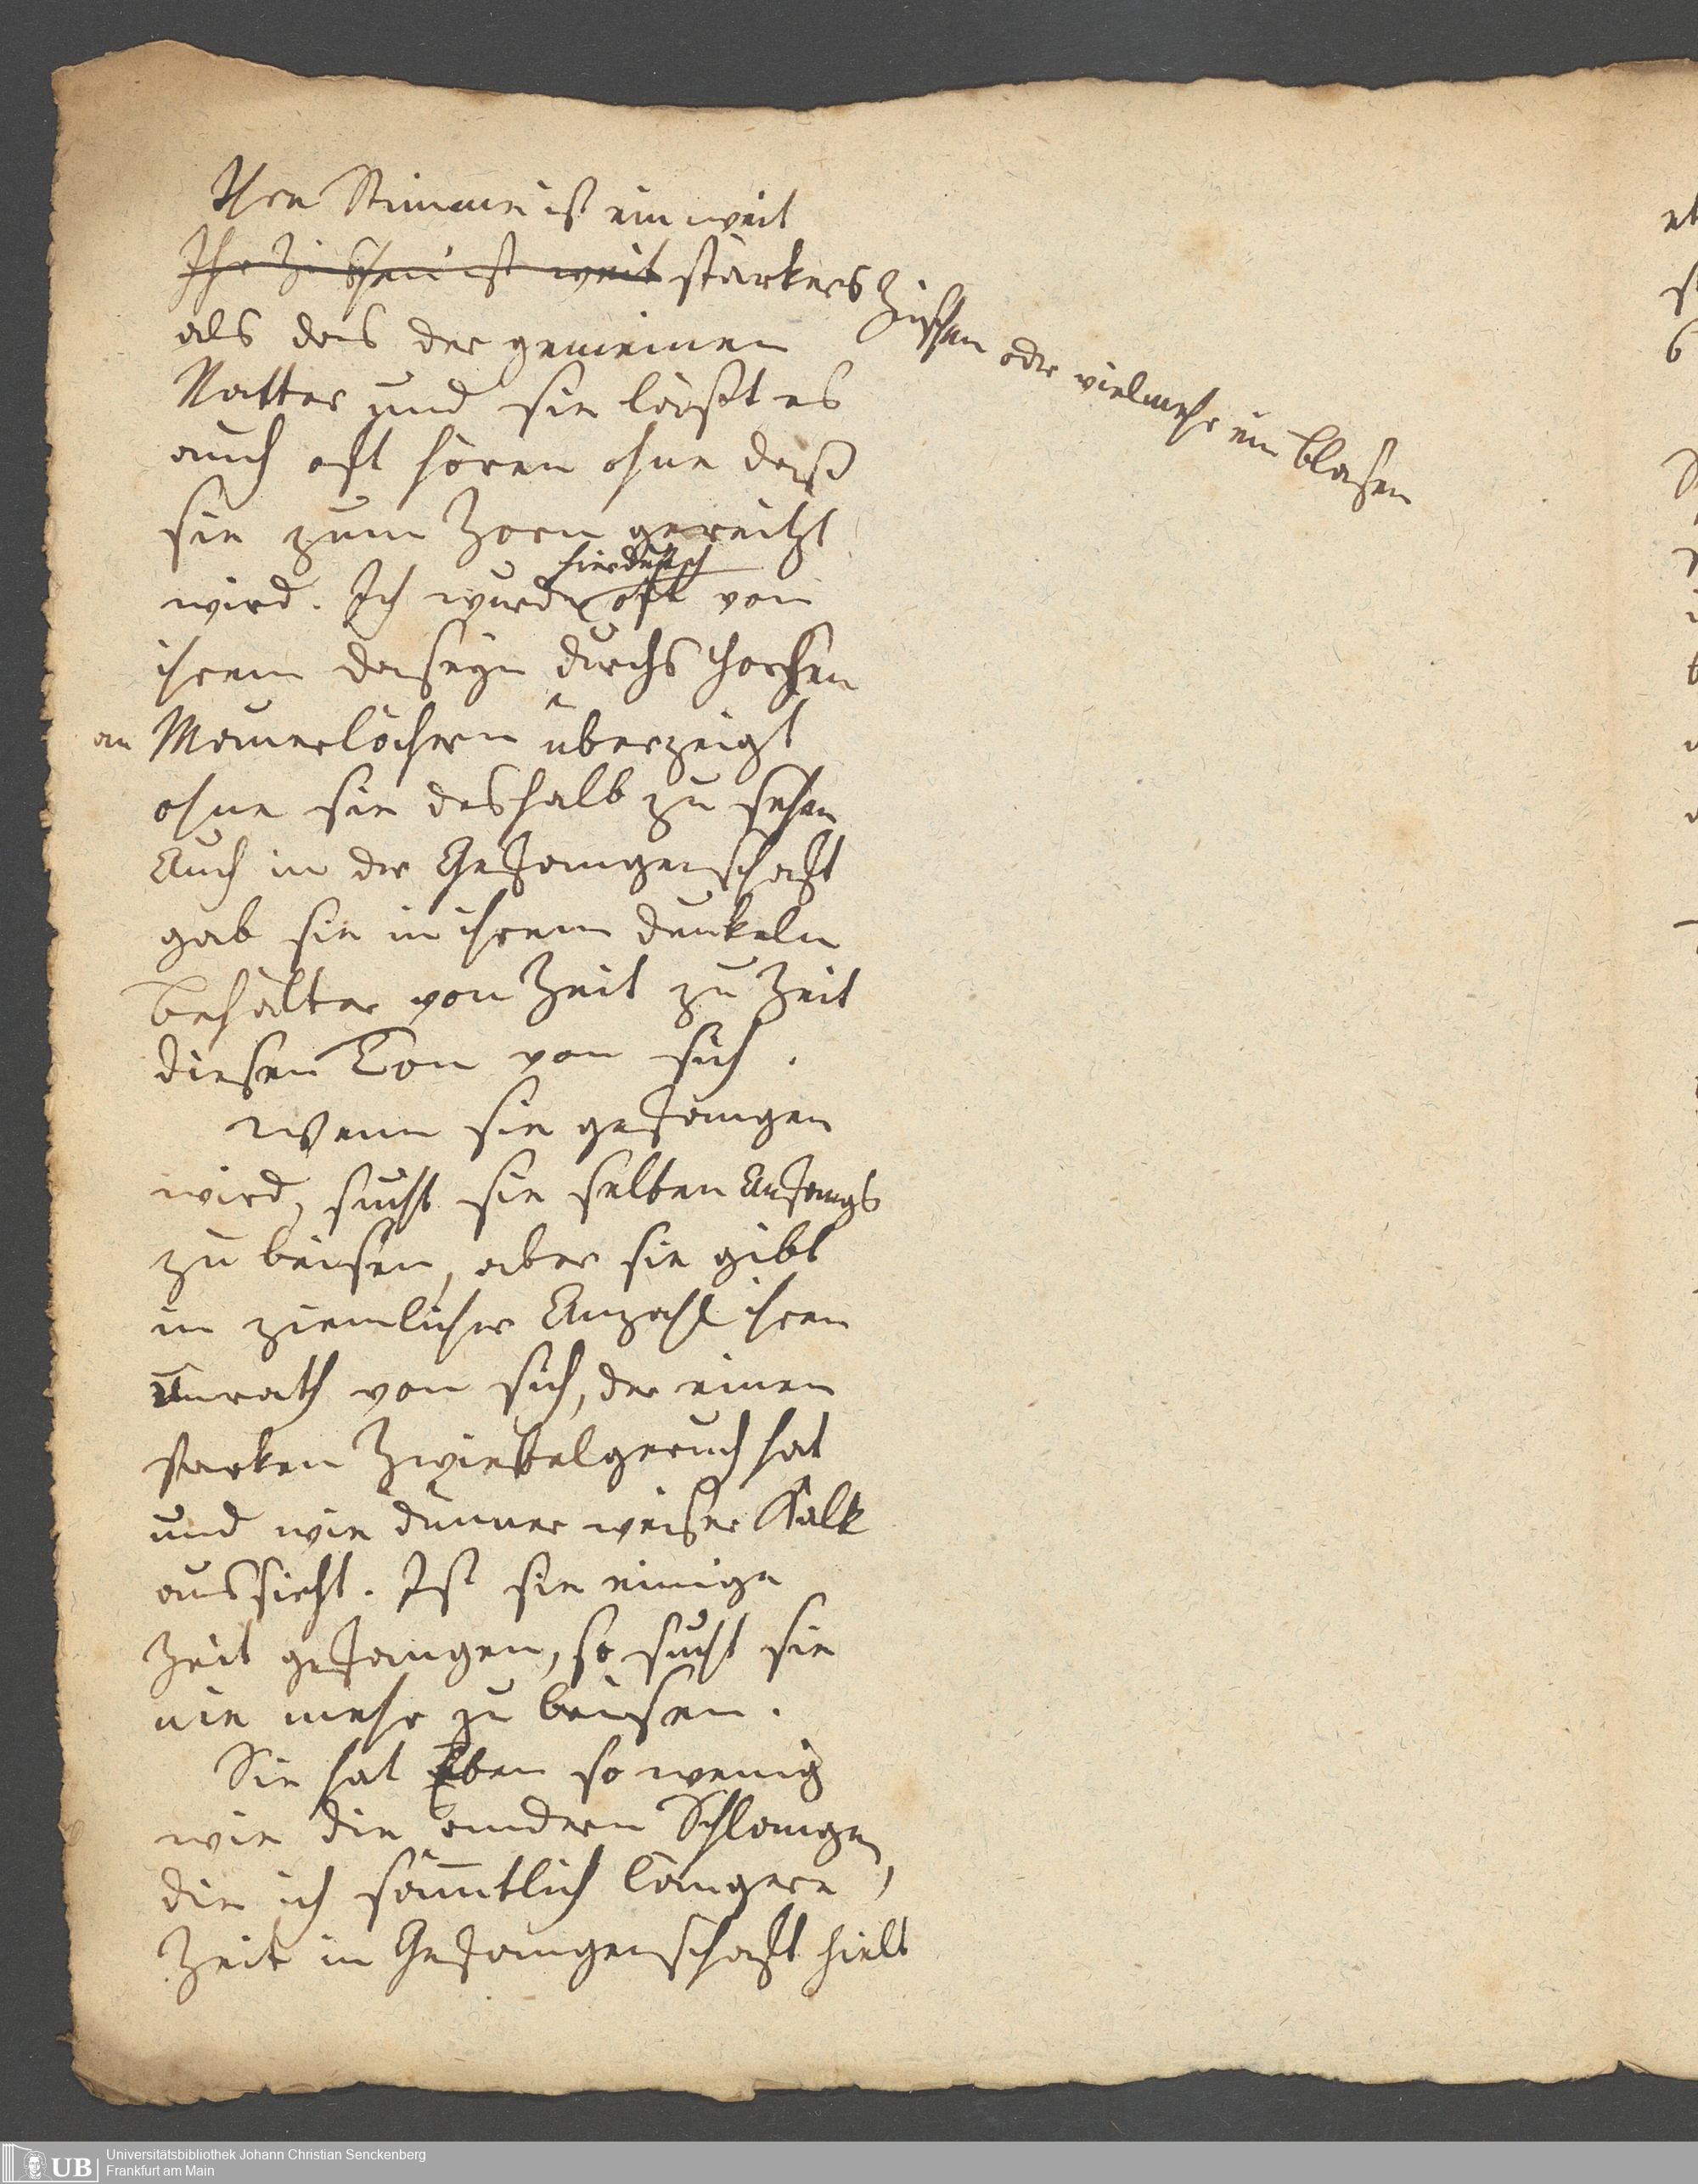 Ihre Stimme ist ein weit
Ihr Zischen ist weit stärkers Zischen oder vielmehr ein blasen
als das der gemeinen
Natter und sie läßt es
auch oft hören ohne daß
sie zum Zorn gereitzt
hierdurch
wird. Ich wurde oft von
ihrem daseyn durchs horchen
an Mauerlöchern überzeigt
ohne sie deshalb zu sehen
Auch in der Gefangenschaft
gab sie in ihrem dunkeln
behälter von Zeit zu Zeit
diesen Ton von sich.
Wenn sie gefangen
wird, sucht sie selten Anfangs
zu beisen, aber sie gibt
in ziemlicher Anzahl ihren
Unrath von sich, der einen
starken Zwiebelgeruch hat
und wie dünner weiser Kalk
aussieht. Ist sie einige
Zeit gefangen, so sucht sie
nie mehr zu beisen.
Sie hat Eben so wenig
wie die andern Schlangen,
die ich säm̅tlich längere
Zeit in Gefangenschaft hielt
UB
Universitätsbibliothek Johann Christian Senckenberg
Frankfurt am Main